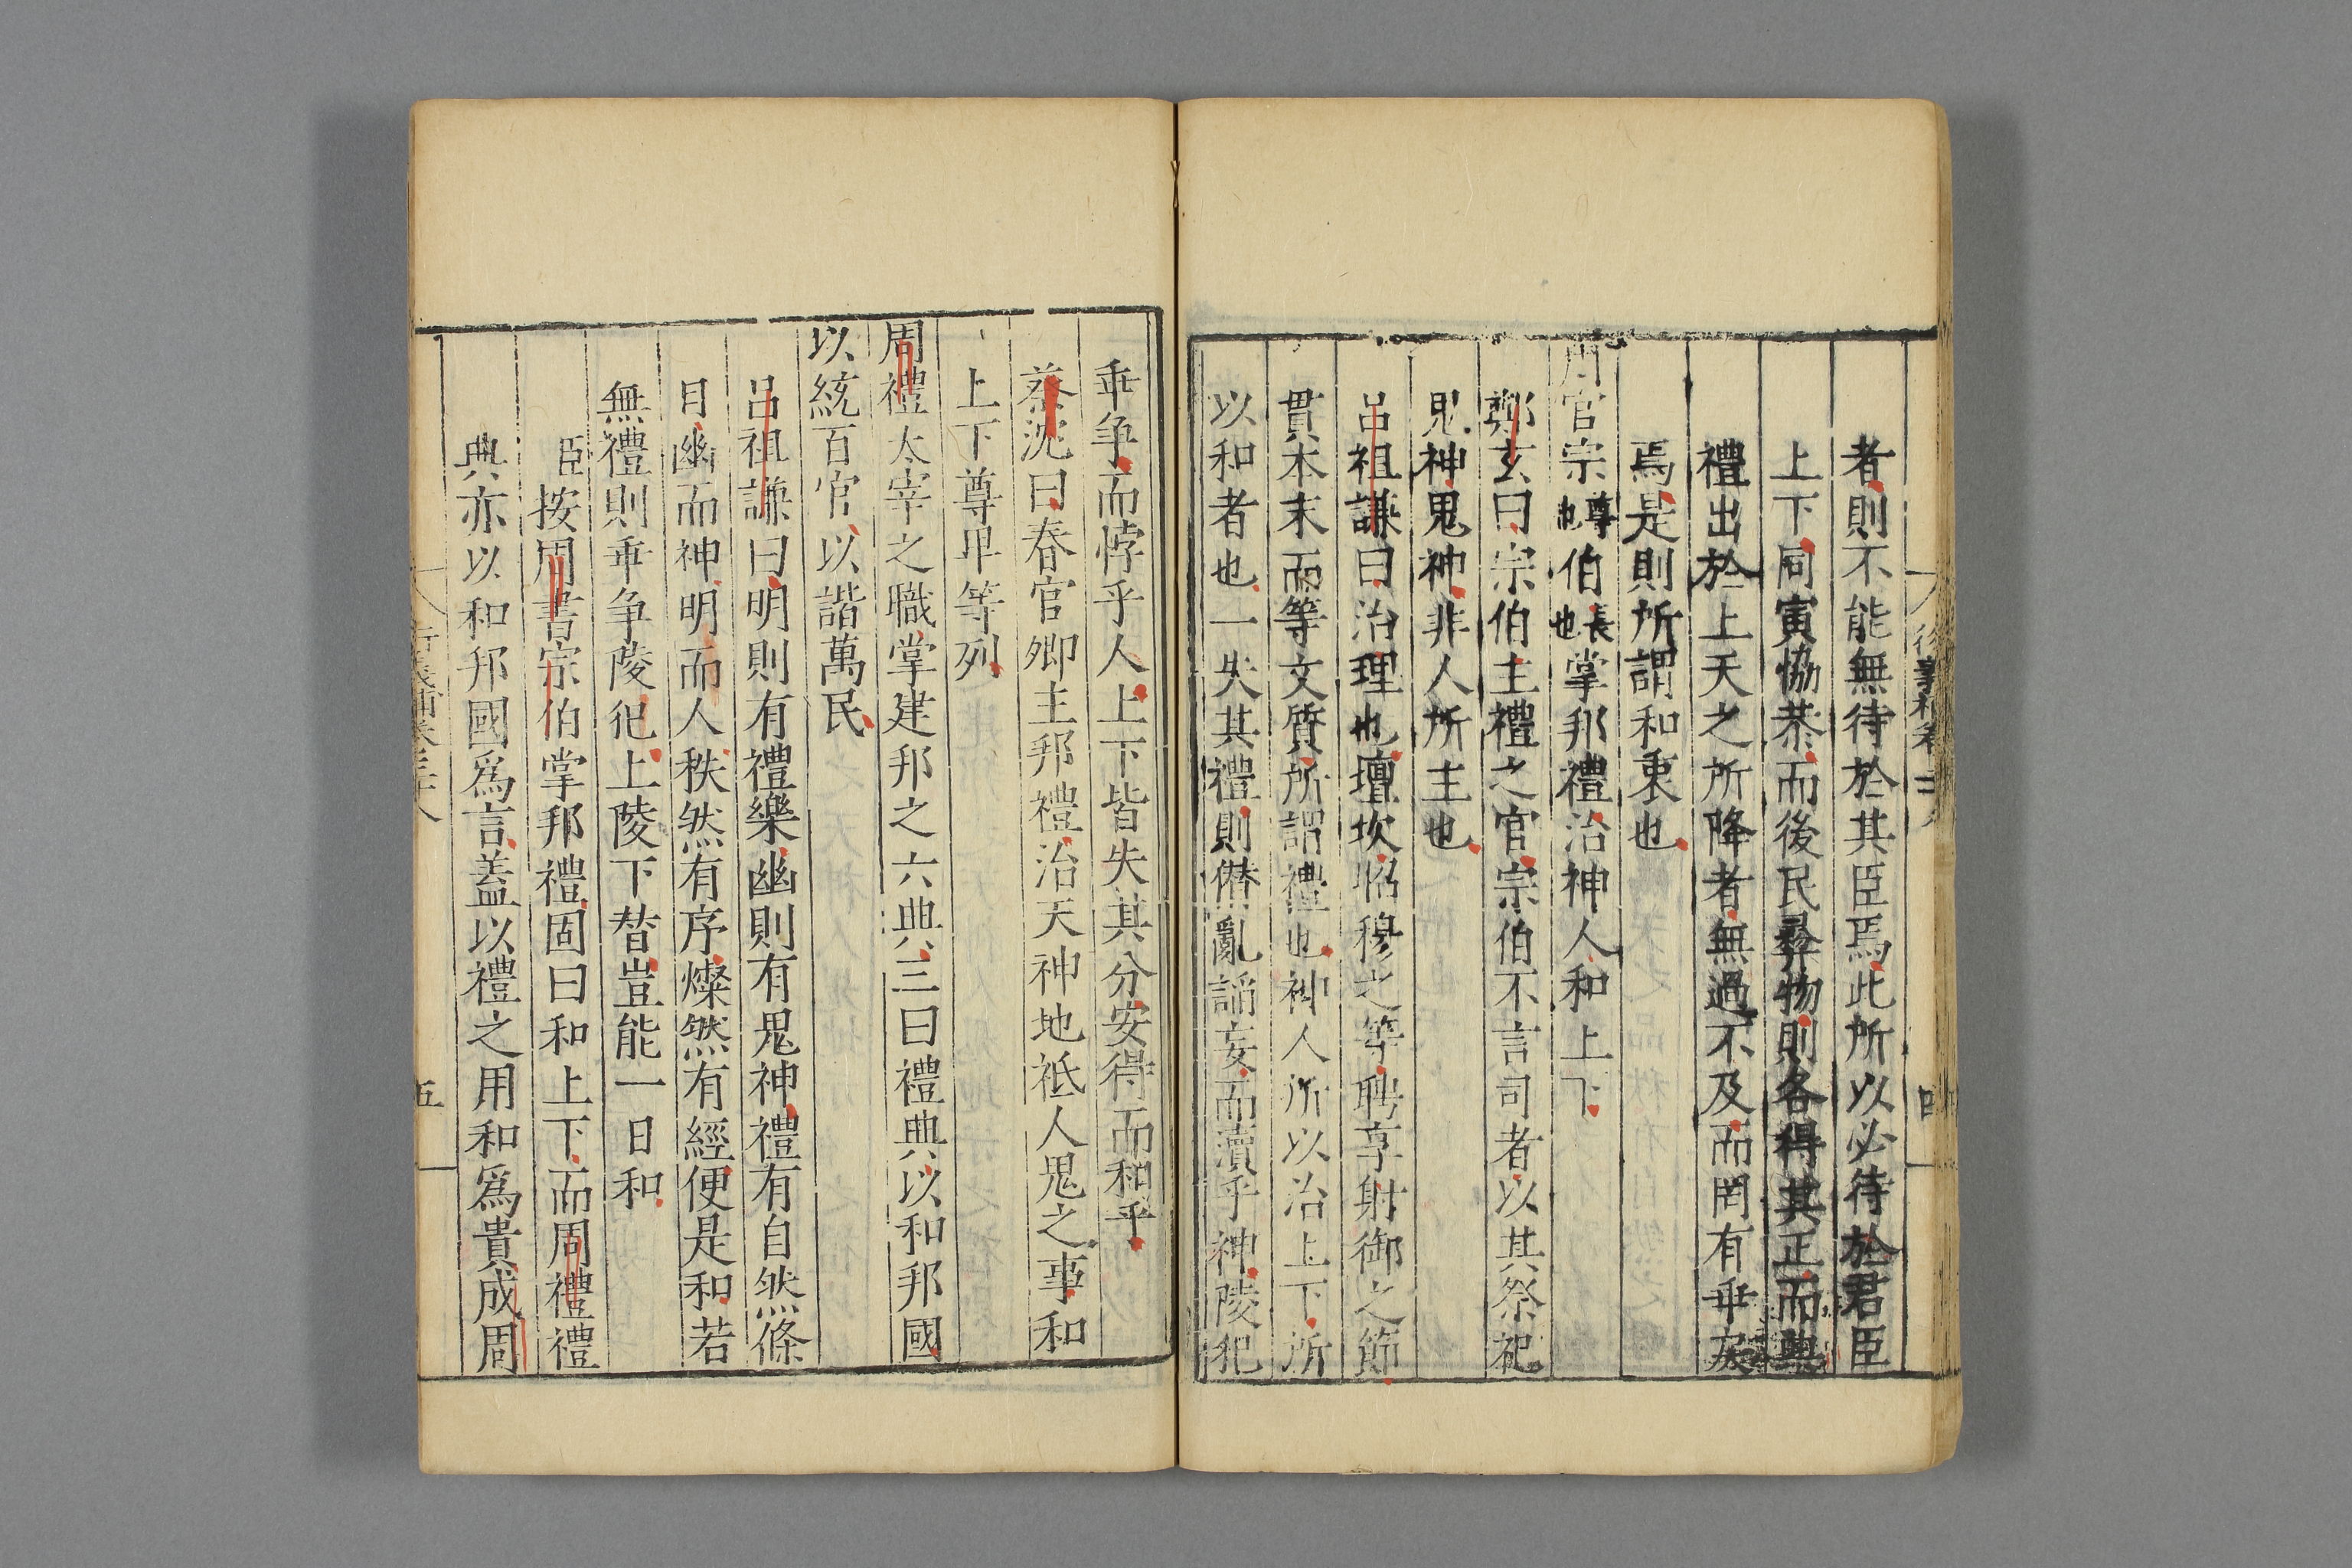 者則不能無待於其臣焉此所以必待於君臣
上下同寅協恭而後民彝物則各得其正而典
禮出於上天之所降者無過不及而罔有乖戾
焉是則所謂和衷也
周官宗尊也伯長也掌邦禮治神人和上下
鄭玄曰宗伯主禮之官宗伯不言司者以其祭祀
鬼神鬼神非人所主也
呂祖謙曰治理也壇坎昭穆之等聘享射御之節
貫本末而等文質所謂禮也神人所以治上下所
以和者也一失其禮則僣亂謟妄而瀆乎神陵犯
乖争而悖乎人上下皆失其分安得而和乎
蔡沈曰春官卿主邦禮治天神地祗人鬼之事和
上下尊卑等列
周禮太宰之職掌建邦之六典三曰禮典以和邦國
以統百官以諧萬民
呂祖謙曰明則有禮樂幽則有鬼神禮有自然條
目幽而神明而人秩然有序燦然有經便是和若
無禮則乖争陵犯上陵下替豈能一日和
臣按周書宗伯掌邦禮固曰和上下而周禮禮
典亦以和邦國爲言蓋以禮之用和爲貴成周
五